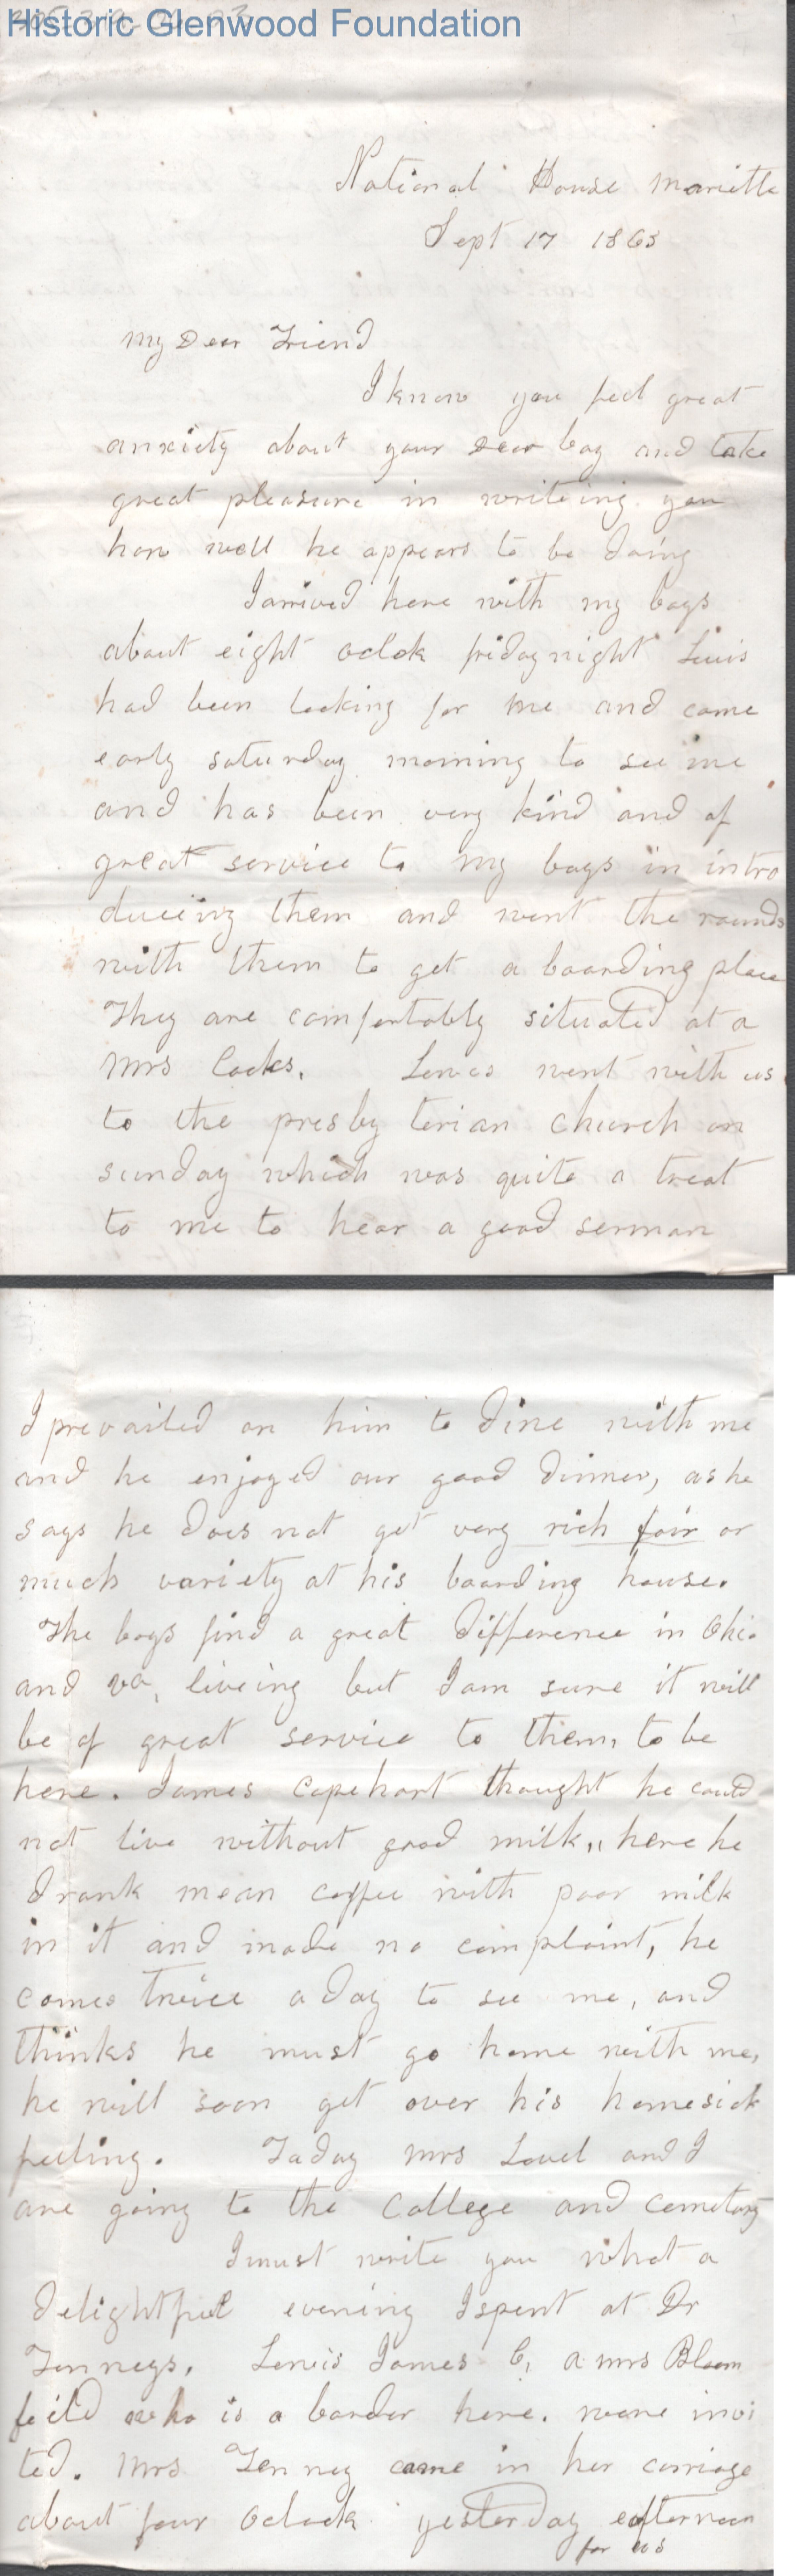 Historic Glenwood Foundation
National House Marietta
Sept 17 1863
My Dear Friend
I know you feel great
anxiety about your dear boy and take
great pleasure in writeing you
how well he appears to be doing
I arrived here with my boys
about eight oclok friday night Lewis
had been looking for me and came
early saturday morning to see me
and has been very kind and of
great service to my boys in intro
duceing them and went the rounds
with them to get a boarding place
They are comfortably situated at a
Mrs Cooks. Lewis went with us
to the presby terian church on
sunday which was quite a treat
to me to hear a good serman
I prevailed on him to dine with me
and he enjoyed our good dinner, as he
says he does not get very rich fair or
much variety at his boarding house.
The boys find a great difference in Ohio
and va, liveing but I am sure it will
be of great service to them, to be
here. James Capehart thought he could
not live without good milk,, here he
drank mean coffee with poor milk
in it and made no complaint, he
comes twice a day to see me, and
thinks he must go home with me,
he will soon get over his homesick
feeling. Today Mrs Lovel and I
are going to the College and cemetary
I must write you what a
delightful evening I spent at Dr
Tenneys. Lewis James C, a mrs Bloom
feild who is a border here. were invi
ted. Mrs Tenney came in her carriage
about four Oclock yesterday eafternoon
for us